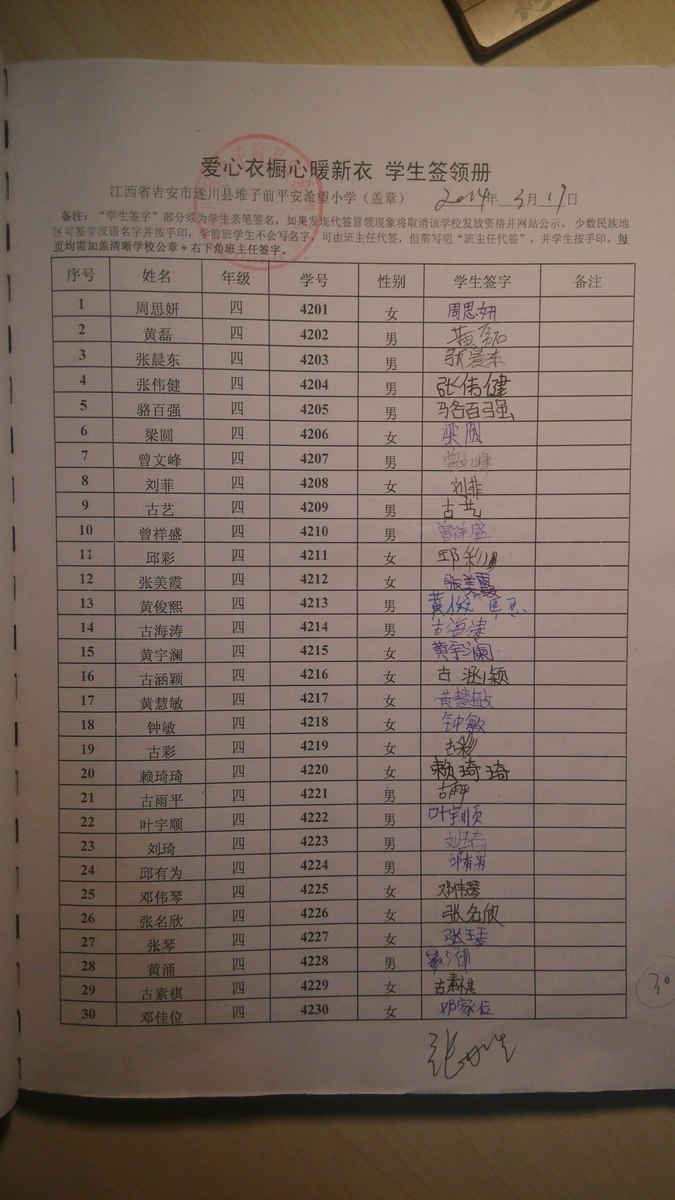 爱心衣橱心暖新衣 学生签领册
江西省吉安市遂川县堆子前平安希望小学（盖章） 2014年 3月 19日
备注：“学生签字”部分须为学生亲笔签名，如果发现代签冒领现象将取消该学校发放资格并网站公示。少数民族地
区可签非汉语名字并按手印，学前班学生不会写名字，可由班主任代签，但需写明“班主任代签”，并学生按手印。每
页均需加盖清晰学校公章＋右下角班主任签字。
序号 姓名 年级 学号 性别 学生签字 备注
1 周思妍 四 4201 女 周思妍
2 黄磊 四 4202 男 黄磊
3 张晨东 四 4203 男 张晨东
4 张伟健 四 4204 男 张伟健
5 骆百强 四 4205 男 骆百强
6 梁圆 四 4206 女 梁圆
7 曾文峰 四 4207 男 曾文峰
8 刘菲 四 4208 女 刘菲
9 古艺 四 4209 男 古艺
10 曾祥盛 四 4210 男 曾祥盛
11 邱彩 四 4211 女 邱彩
12 张美霞 四 4212 女 张美霞
13 黄俊熙 四 4213 男 黄俊
14 古海涛 四 4214 男 古海涛
15 黄宇澜 四 4215 女 黄宇澜
16 古涵颖 四 4216 女 古涵颖
17 黄慧敏 四 4217 女 黄慧敏
18 钟敏 四 4218 女 钟敏
19 古彩 四 4219 女 古彩
20 赖琦琦 四 4220 女 赖琦琦
21 古雨平 四 4221 男 古雨平
22 叶宇顺 四 4222 男 叶宇顺
23 刘琦 四 4223 男 刘琦
24 邱有为 四 4224 男 邱有为
25 邓伟琴 四 4225 女 邓伟琴
26 张名欣 四 4226 女 张名欣
27 张琴 四 4227 女 张琴
28 黄涌 四 4228 男
29 古素祺 四 4229 女 古素祺
30 邓佳位 四 4230 女 邓家位
30